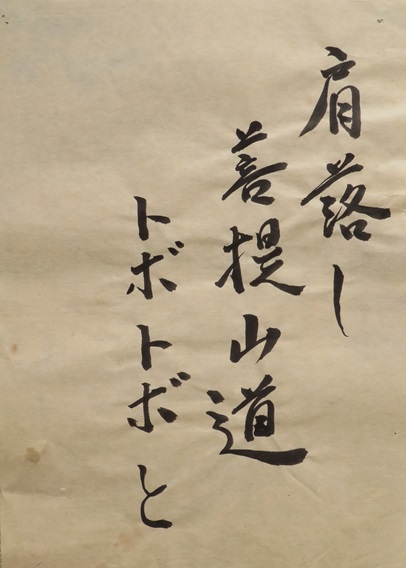 肩落し
菩提山道
トボトボと